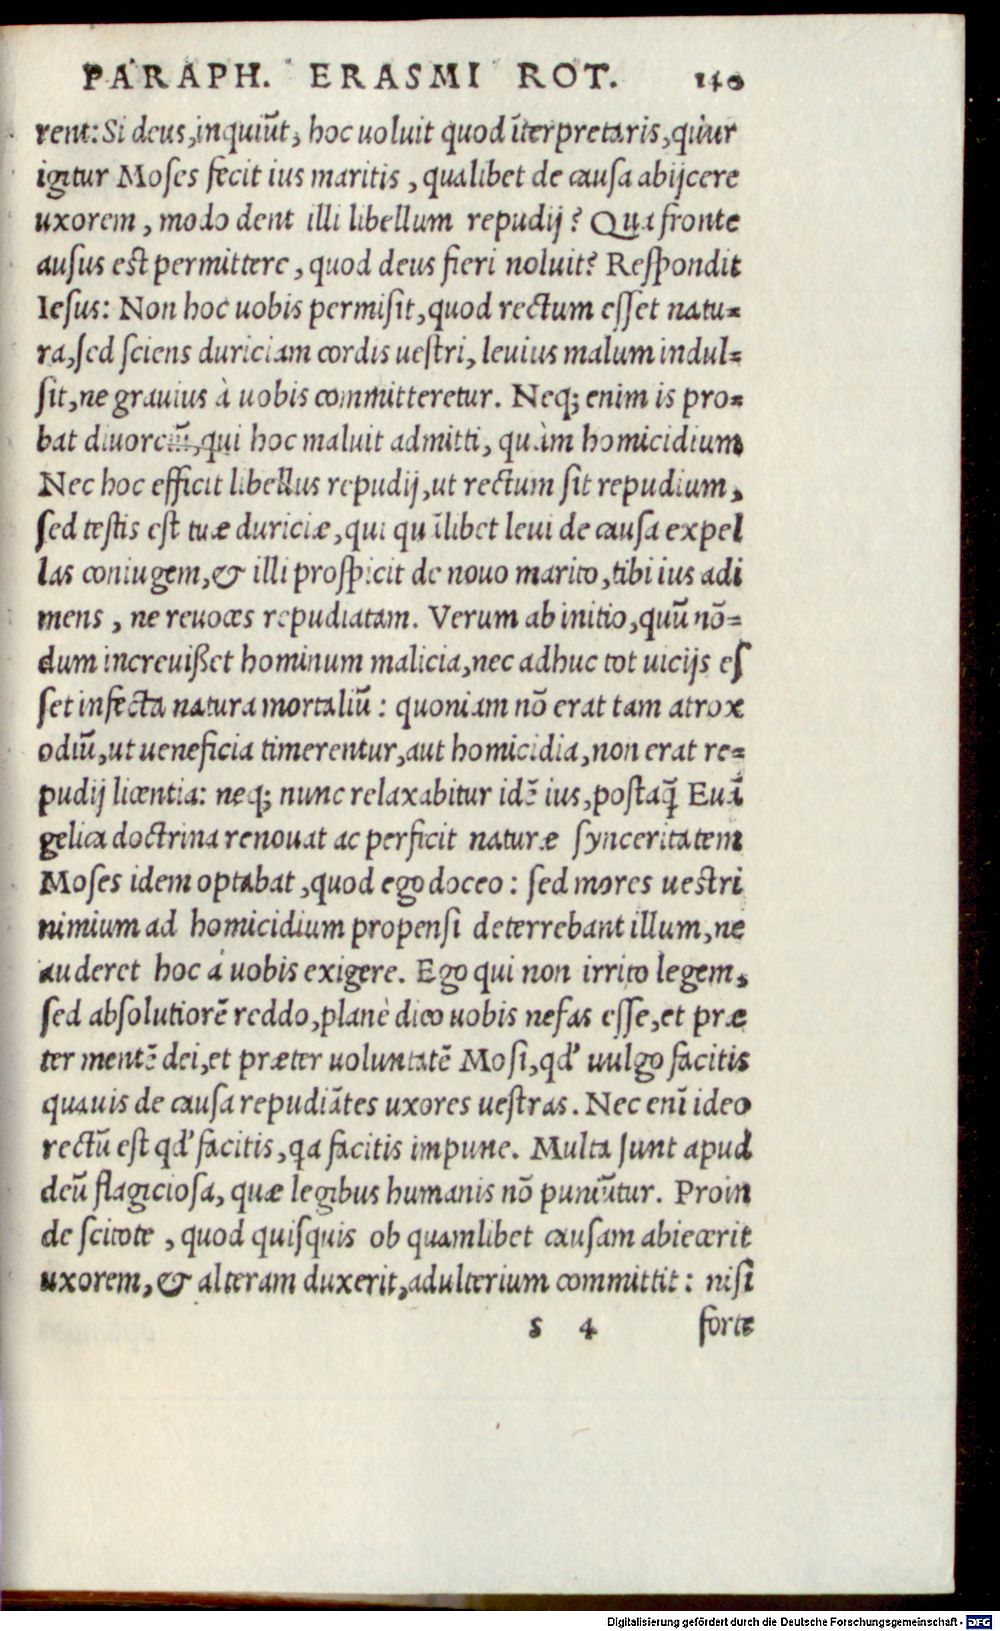 PARAPH. ERASMI ROT. 140
rent: Si deus, inquiūt, hoc uoluit quod īterpretaris, qúur
igitur Moses fecit ius maritis, qualibet de causa abijcere
uxorem, modo dent illi libellum repudij? Qua fronte
ausus est permittere, quod deus fieri noluit? Respondit
Iesus: Non hoc uobis permisit, quod rectum esset natu-
ra, sed sciens duriciam cordis uestri, leuius malum indul-
sit, ne grauius à uobis committeretur. Neq; enim is pro-
bat diuorciū, qui hoc maluit admitti, quàm homicidium
Nec hoc efficit libellus repudij, ut rectum sit repudium,
sed testis est tuæ duriciæ, qui qu ālibet leui de causa expel
las coniugem, & illi prospicit de nouo marito, tibi ius adi
mens, ne reuoces repudiatam. Verum ab initio, quū nō-
dum increuißet hominum malicia, nec adhuc tot uicijs es
set infecta natura mortaliū: quoniam nō erat tam atrox
odiū, ut ueneficia timerentur, aut homicidia, non erat re-
pudij licentia: neq; nunc relaxabitur idē ius, postaq̄ Euā
gelica doctrina renouat ac perficit naturæ synceritatem
Moses idem optabat, quod ego doceo: sed mores uestri
nimium ad homicidium propensi deterrebant illum, ne
auderet hoc á uobis exigere. Ego qui non irrito legem,
sed absolutiorē reddo, planè dico uobis nefas esse, et præ
ter mentē dei, et præter uoluntatē Mosi, qd' uulgo facitis
quauis de causa repudiātes uxores uestras. Nec enī ideo
rectū est qd' facitis, qa facitis impune. Multa sunt apud
deū flagiciosa, quæ legibus humanis nō puniūtur. Proin
de scitote, quod quisquis ob quamlibet causam abiecerit
uxorem, & alteram duxerit, adulterium committit: nisi
s 4 forte
Digitalisierung gefördert durch die Deutsche Forschungsgemeinschaft - DFG